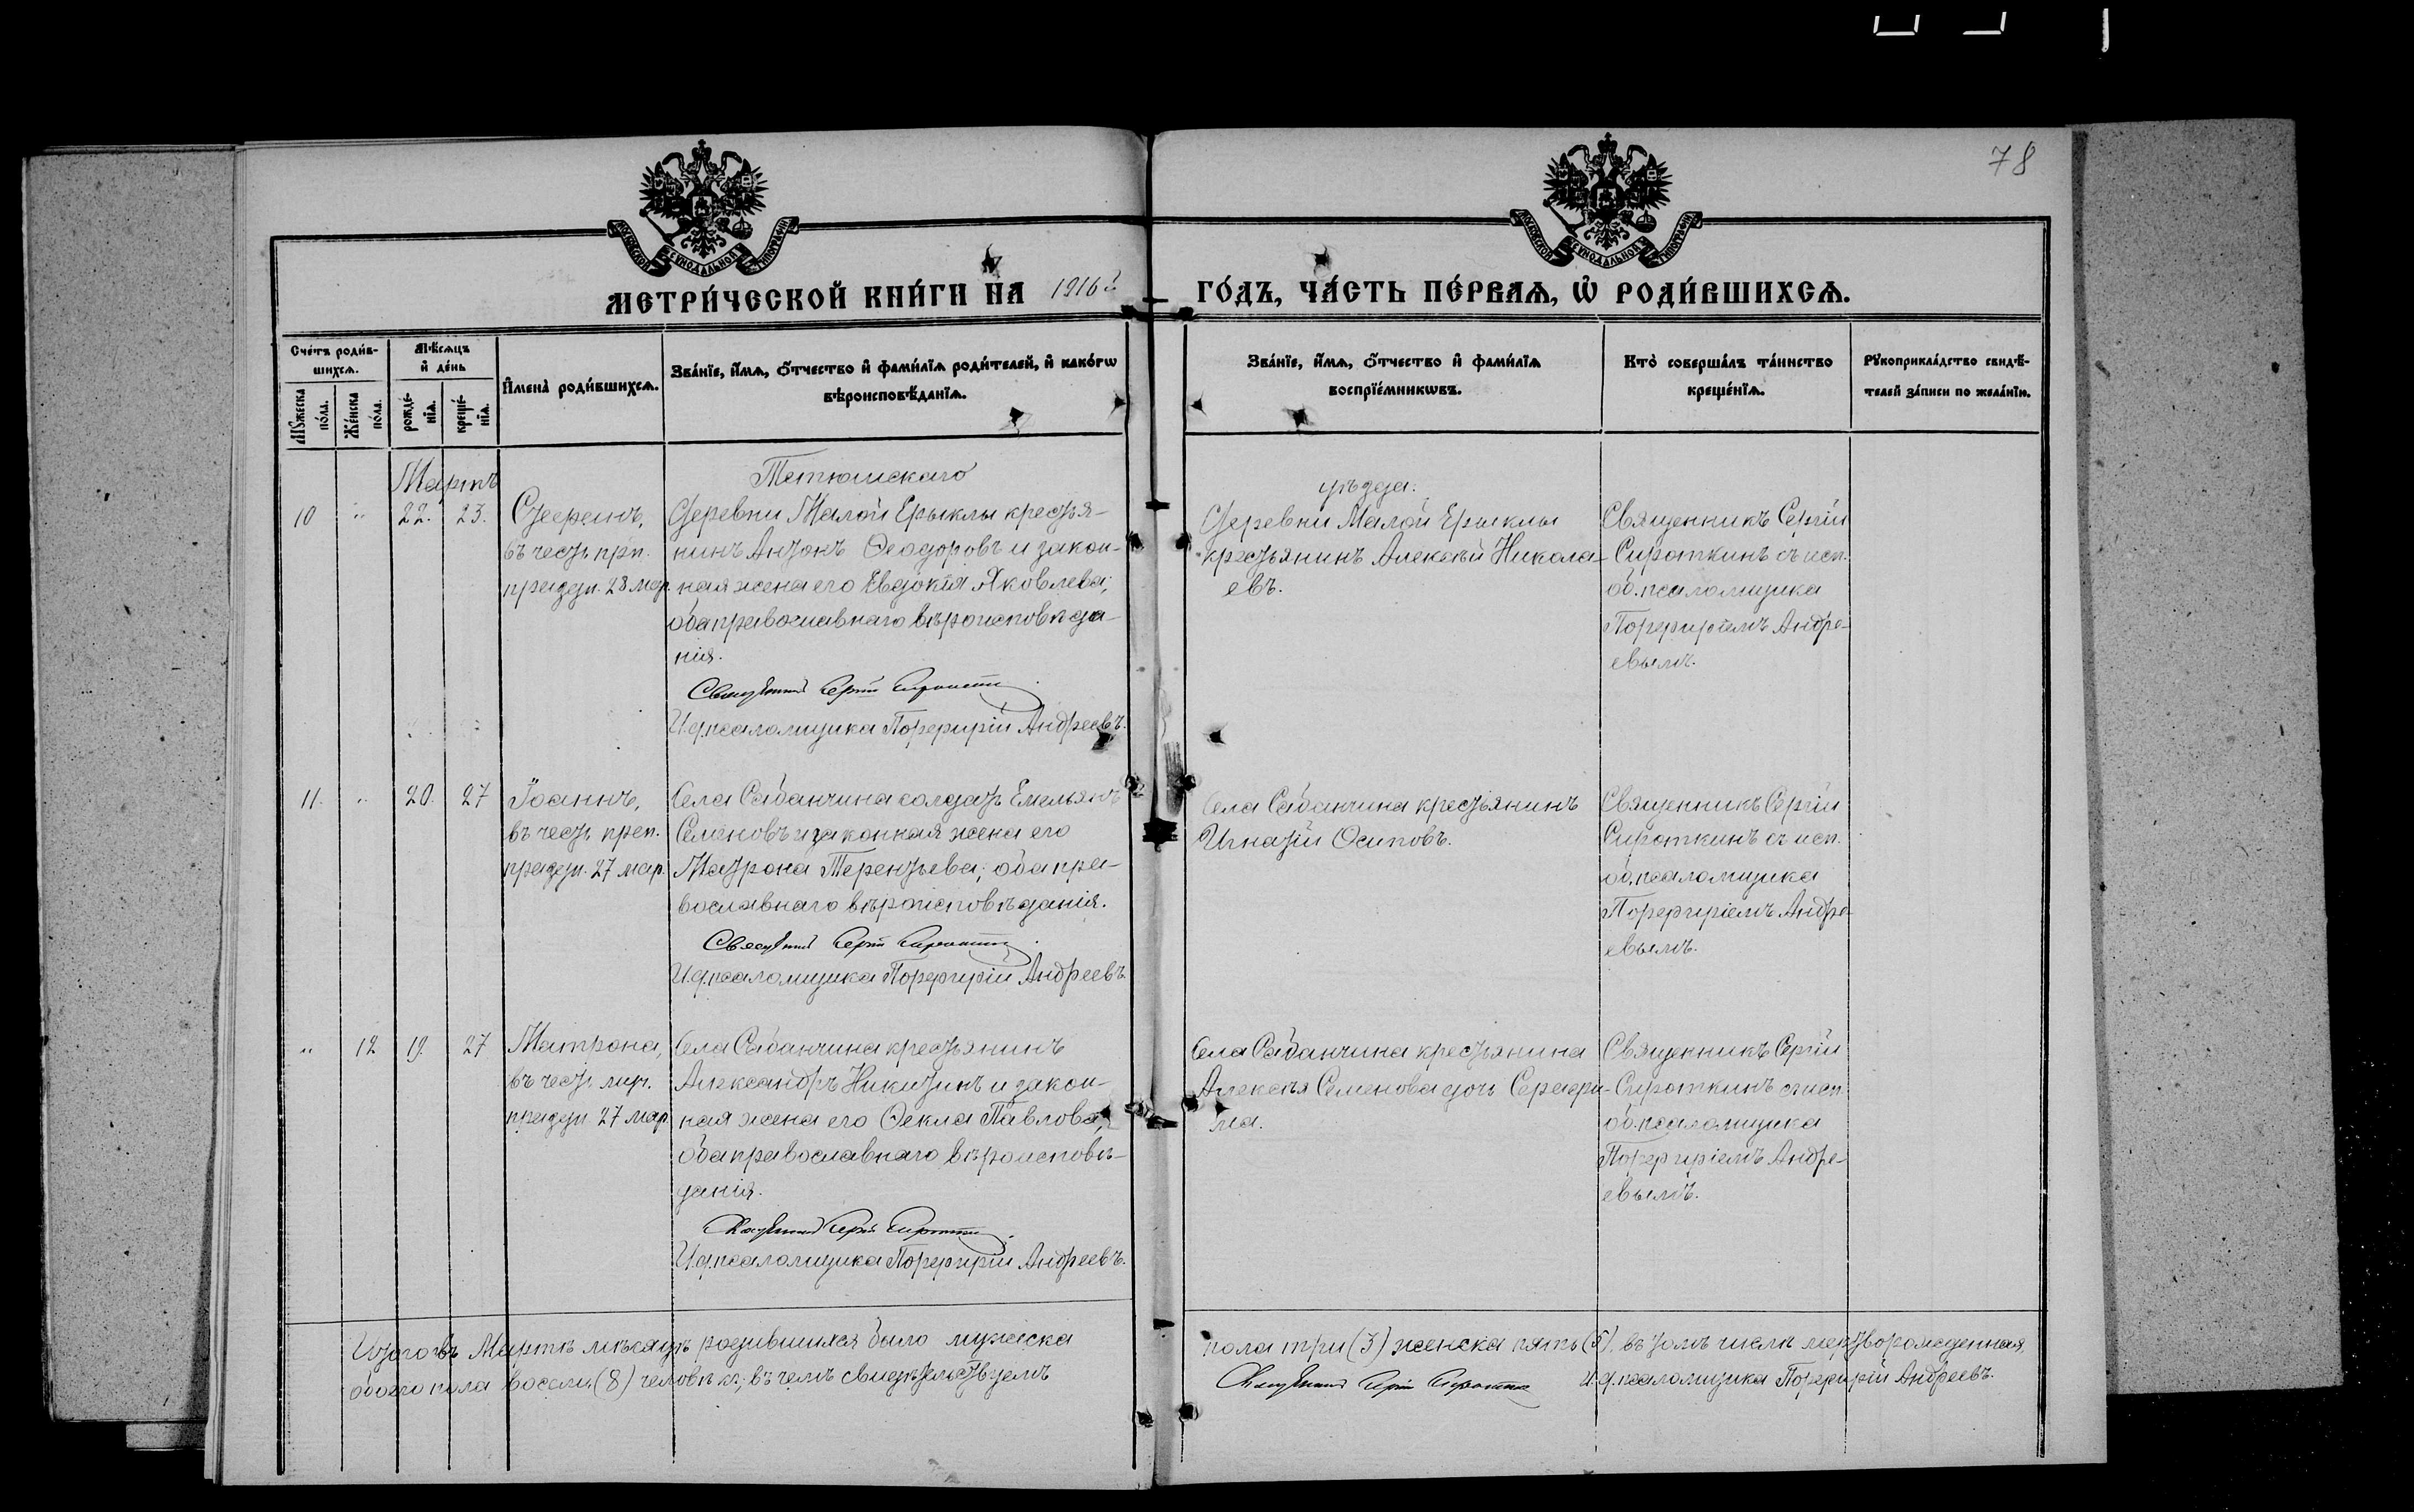 78
МОСКОВСКОЙ СѴНОДАЛЬНОЙ ТИПОГРАФІИ
МОСКОВСКОЙ СѴНОДАЛЬНОЙ ТИПОГРАФІИ
МЕТРИ́ЧЕСКОЙ КНИ́ГИ НА 1916й ГО́ДЪ, ЧА́СТЬ ПЕ́РВАѦ, Ѡ҆ РОДИ́ВШИХСѦ.
Сче́тъ роди́в-
шихсѧ.
Мꙋ́жеска по́ла.
Же́нска по́ла.
Мѣ́сѧцъ
и҆ де́нь
рожде́-
нїѧ.
креще́-
нїѧ.
И҆мена̀ роди́вшихсѧ.
Зва́нїе, и҆́мѧ, ѻ҆́тчество и҆ фами́лїѧ роди́телей, и҆ како́гѡ
вѣроисповѣ́данїѧ.
Зва́нїе, и҆́мѧ, ѻ҆́тчество и҆ фами́лїѧ
воспрїе́мникѡвъ.
Кто̀ соверша́лъ та́инство
креще́нїѧ.
Рꙋкоприкла́дство свидѣ́-
телей за́писи по жела́нїю.
Мартъ
Тетюшскаго
уѣзда.
10 " 22. 23.
въ честь прп.
празды. 28 мар.
Деревни Малой Ерыклы крестья-
нинъ Антонъ Ѳеодоровъ и закон-
ная жена его Евдокія Яковлева;
оба православнаго вѣроисповѣда-
нія.
Священникъ Сергій Сироткинъ
И.д. псаломщика Порфирій Андреевъ.
Деревни Малой Ерыклы
крестьянинъ Алексѣй Никола-
евъ.
Священникъ Сергій
Сироткинъ съ исп.
об. псаломщика
Порфиріемъ Андре-
евымъ.
11. " 20. 27
Іоаннъ,
въ честь преп.
празды. 27 мар.
Села Сабанчина солдатъ Емельянъ
Семеновъ и законная жена его
Матрона Терентьева; оба пра-
вославнаго вѣроисповѣданія.
Священникъ Сергій Сироткинъ
И.д. псаломщика Порфирій Андреевъ.
Села Сабанчина крестьянинъ
Игнатій Осиповъ.
Священникъ Сергій
Сироткинъ съ исп.
об. псаломщика
Порфиріемъ Андре-
евымъ.
" 12 19. 27
Матрона,
въ честь муч.
празды. 27 мар.
Села Сабанчина крестьянинъ
Александръ Никитинъ и закон-
ная жена его Ѳекла Павлова;
оба православнаго вѣроисповѣ-
данія.
Священникъ Сергій Сироткинъ
И.д. псаломщика Порфирій Андреевъ.
Села Сабанчина крестьянина
Алексѣя Семенова дочь Серафи-
ма.
Священникъ Сергій
Сироткинъ съ исп.
об. псаломщика
Порфиріемъ Андре-
евымъ.
Итого въ Мартѣ мѣсяцѣ родившихся было мужска пола три (3) женска пять (5), въ томъ числѣ мертворожденная,
обоего пола восемь (8) человѣкъ; въ чемъ свидѣтельствуемъ Священникъ Сергій Сироткинъ И.д. псаломщика Порфирій Андреевъ.